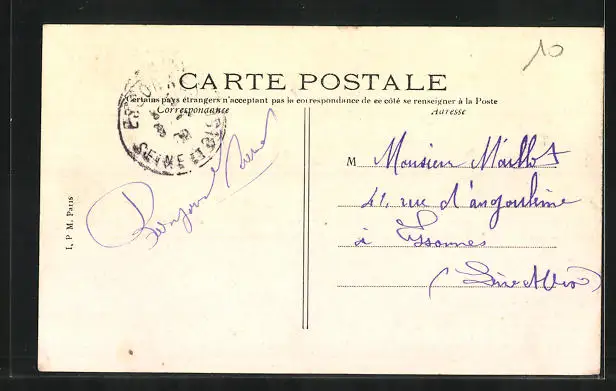 10
CARTE POSTALE
Certains pays étrangers n'acceptant pas la correspondance de ce côté se renseigner à la Poste
Correspondance
Adresse
SEINE ET OISE
M Monsieur Maillot
41, rue d'angoulème
à Essonnes
(Seine et Oise)
I. P M. Paris